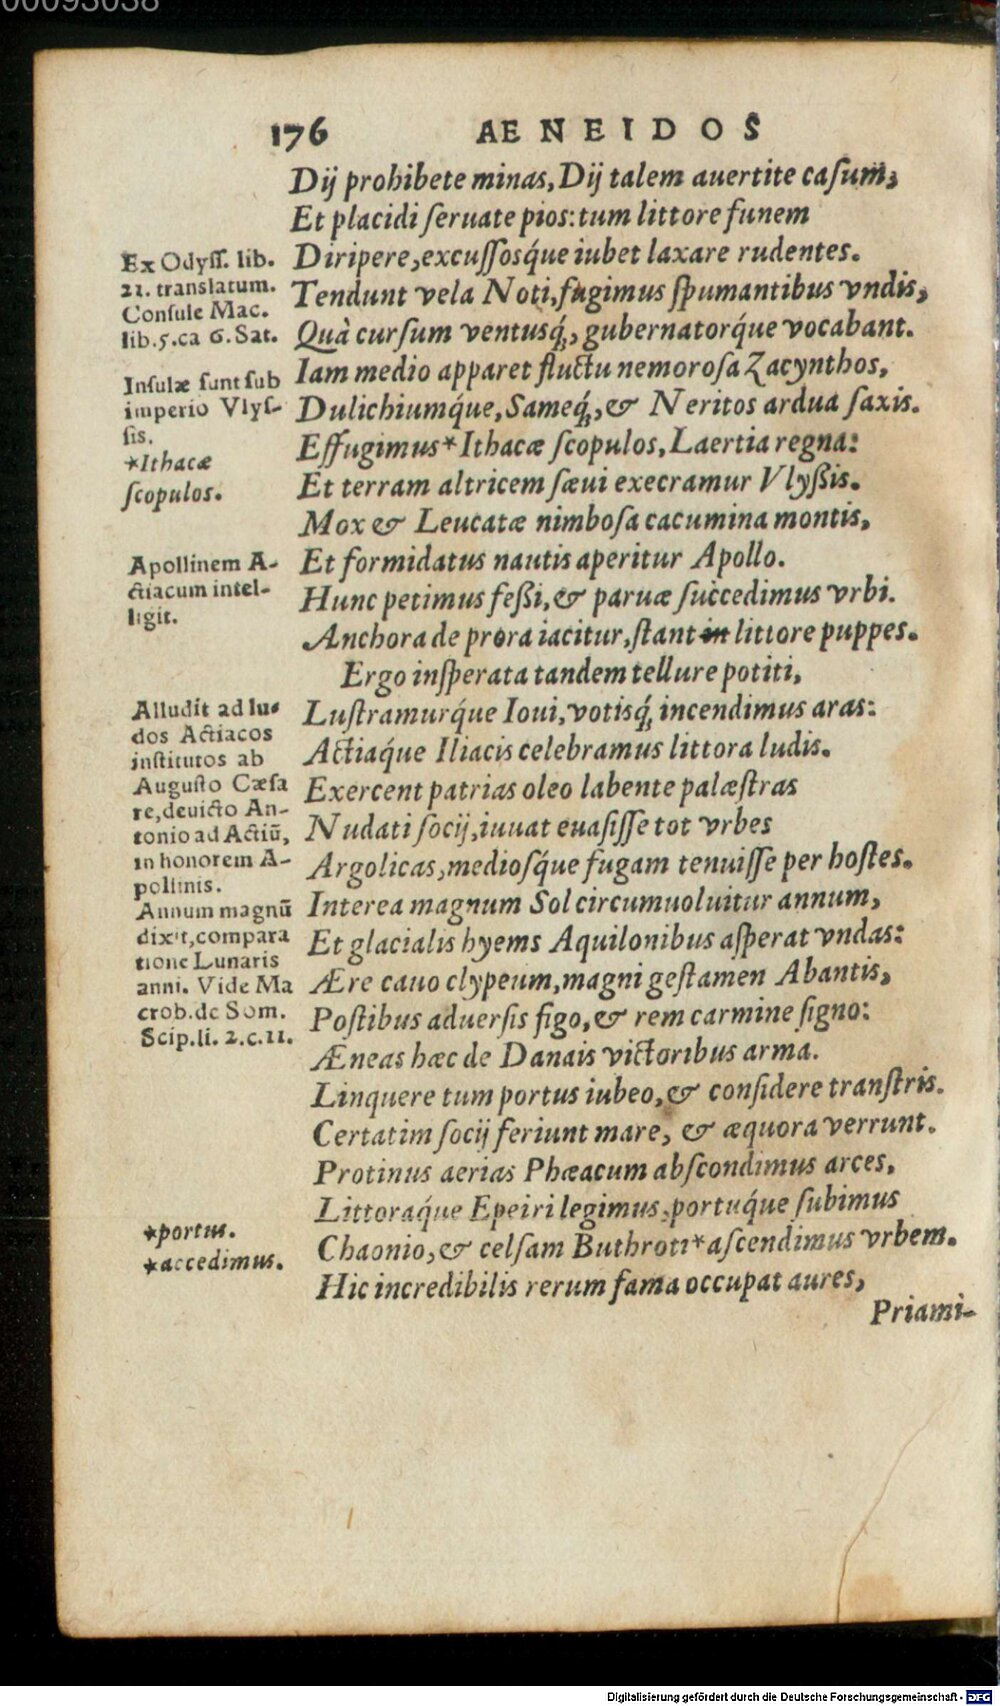 00093038
176 AENEIDOS
Dij prohibete minas, Dij talem auertite caſum,
Et placidi ſeruate pios: tum littore funem
Diripere, excuſſosq́ue iubet laxare rudentes.
Tendunt vela Noti, fugimus ſpumantibus vndis,
Quà curſum ventusq́;, gubernatorq́ue vocabant.
Iam medio apparet fluctu nemoroſa Zacynthos,
Dulichiumq́ue, Sameq́;, & Neritos ardua ſaxis.
Effugimus*Ithacæ ſcopulos, Laertia regna:
Et terram altricem ſæui execramur Vlyßis.
Mox & Leucatæ nimboſa cacumina montis,
Et formidatus nautis aperitur Apollo.
Hunc petimus feßi, & paruæ ſuccedimus vrbi.
Anchora de prora iacitur, ſtant in littore puppes.
Ergo inſperata tandem tellure potiti,
Luſtramurq́ue Ioui, votisq́; incendimus aras:
Actiaq́ue Iliacis celebramus littora ludis.
Exercent patrias oleo labente palæſtras
Nudati ſocij, iuuat euaſiſſe tot vrbes
Argolicas, medioſq́ue fugam tenuiſſe per hoſtes.
Interea magnum Sol circumuoluitur annum,
Et glacialis hyems Aquilonibus aſperat vndas:
Ære cauo clypeum, magni geſtamen Abantis,
Poſtibus aduerſis figo, & rem carmine ſigno:
Æneas hæc de Danais victoribus arma.
Linquere tum portus iubeo, & conſidere tranſtris.
Certatim ſocij feriunt mare, & æquora verrunt.
Protinus aerias Phæacum abſcondimus arces,
Littoraq́ue Epeiri legimus, portuq́ue ſubimus
Chaonio, & celſam Buthroti*aſcendimus vrbem.
Hic incredibilis rerum fama occupat aures,
Priami-
Ex Odyſſ. lib.
21. translatum.
Conſule Mac.
lib.5.ca 6. Sat.
Inſulæ ſunt ſub
imperio Vlyſ-
ſis.
*Ithacæ
ſcopulos.
Apollinem A-
ctiacum intel-
ligit.
Alludit ad lu-
dos Actiacos
inſtitutos ab
Auguſto Cæſa
re, deuicto An-
tonio ad Actiũ,
in honorem A-
pollinis.
Annum magnũ
dixit, compara
tione Lunaris
anni. Vide Ma
crob. de Som.
Scip.li. 2.c.11.
*portus.
*accedimus.
Digitalisierung gefördert durch die Deutsche Forschungsgemeinschaft - DFG